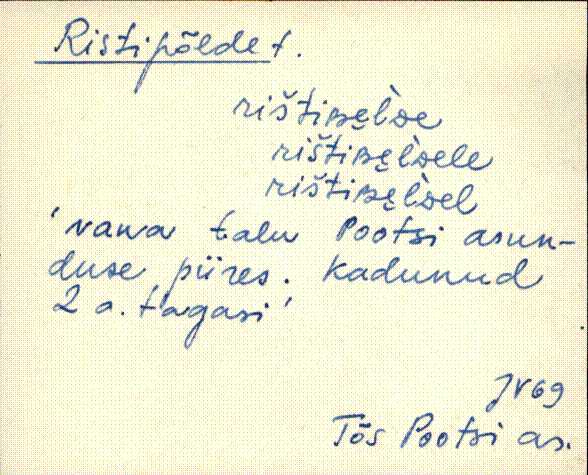 Ristipõlde t.
rištiʙẹl̀ᴅe
rištiʙẹl̀ᴅele
rištiʙẹl̀ᴅel
'vana talu Pootsi asun-
duse piires. Kadunud
2 a. tagasi'
JV69
Tõs Pootsi as.